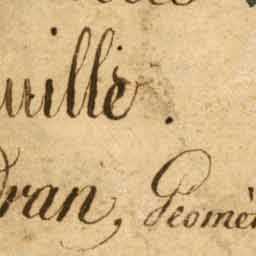 uillè.
dran, Geomè